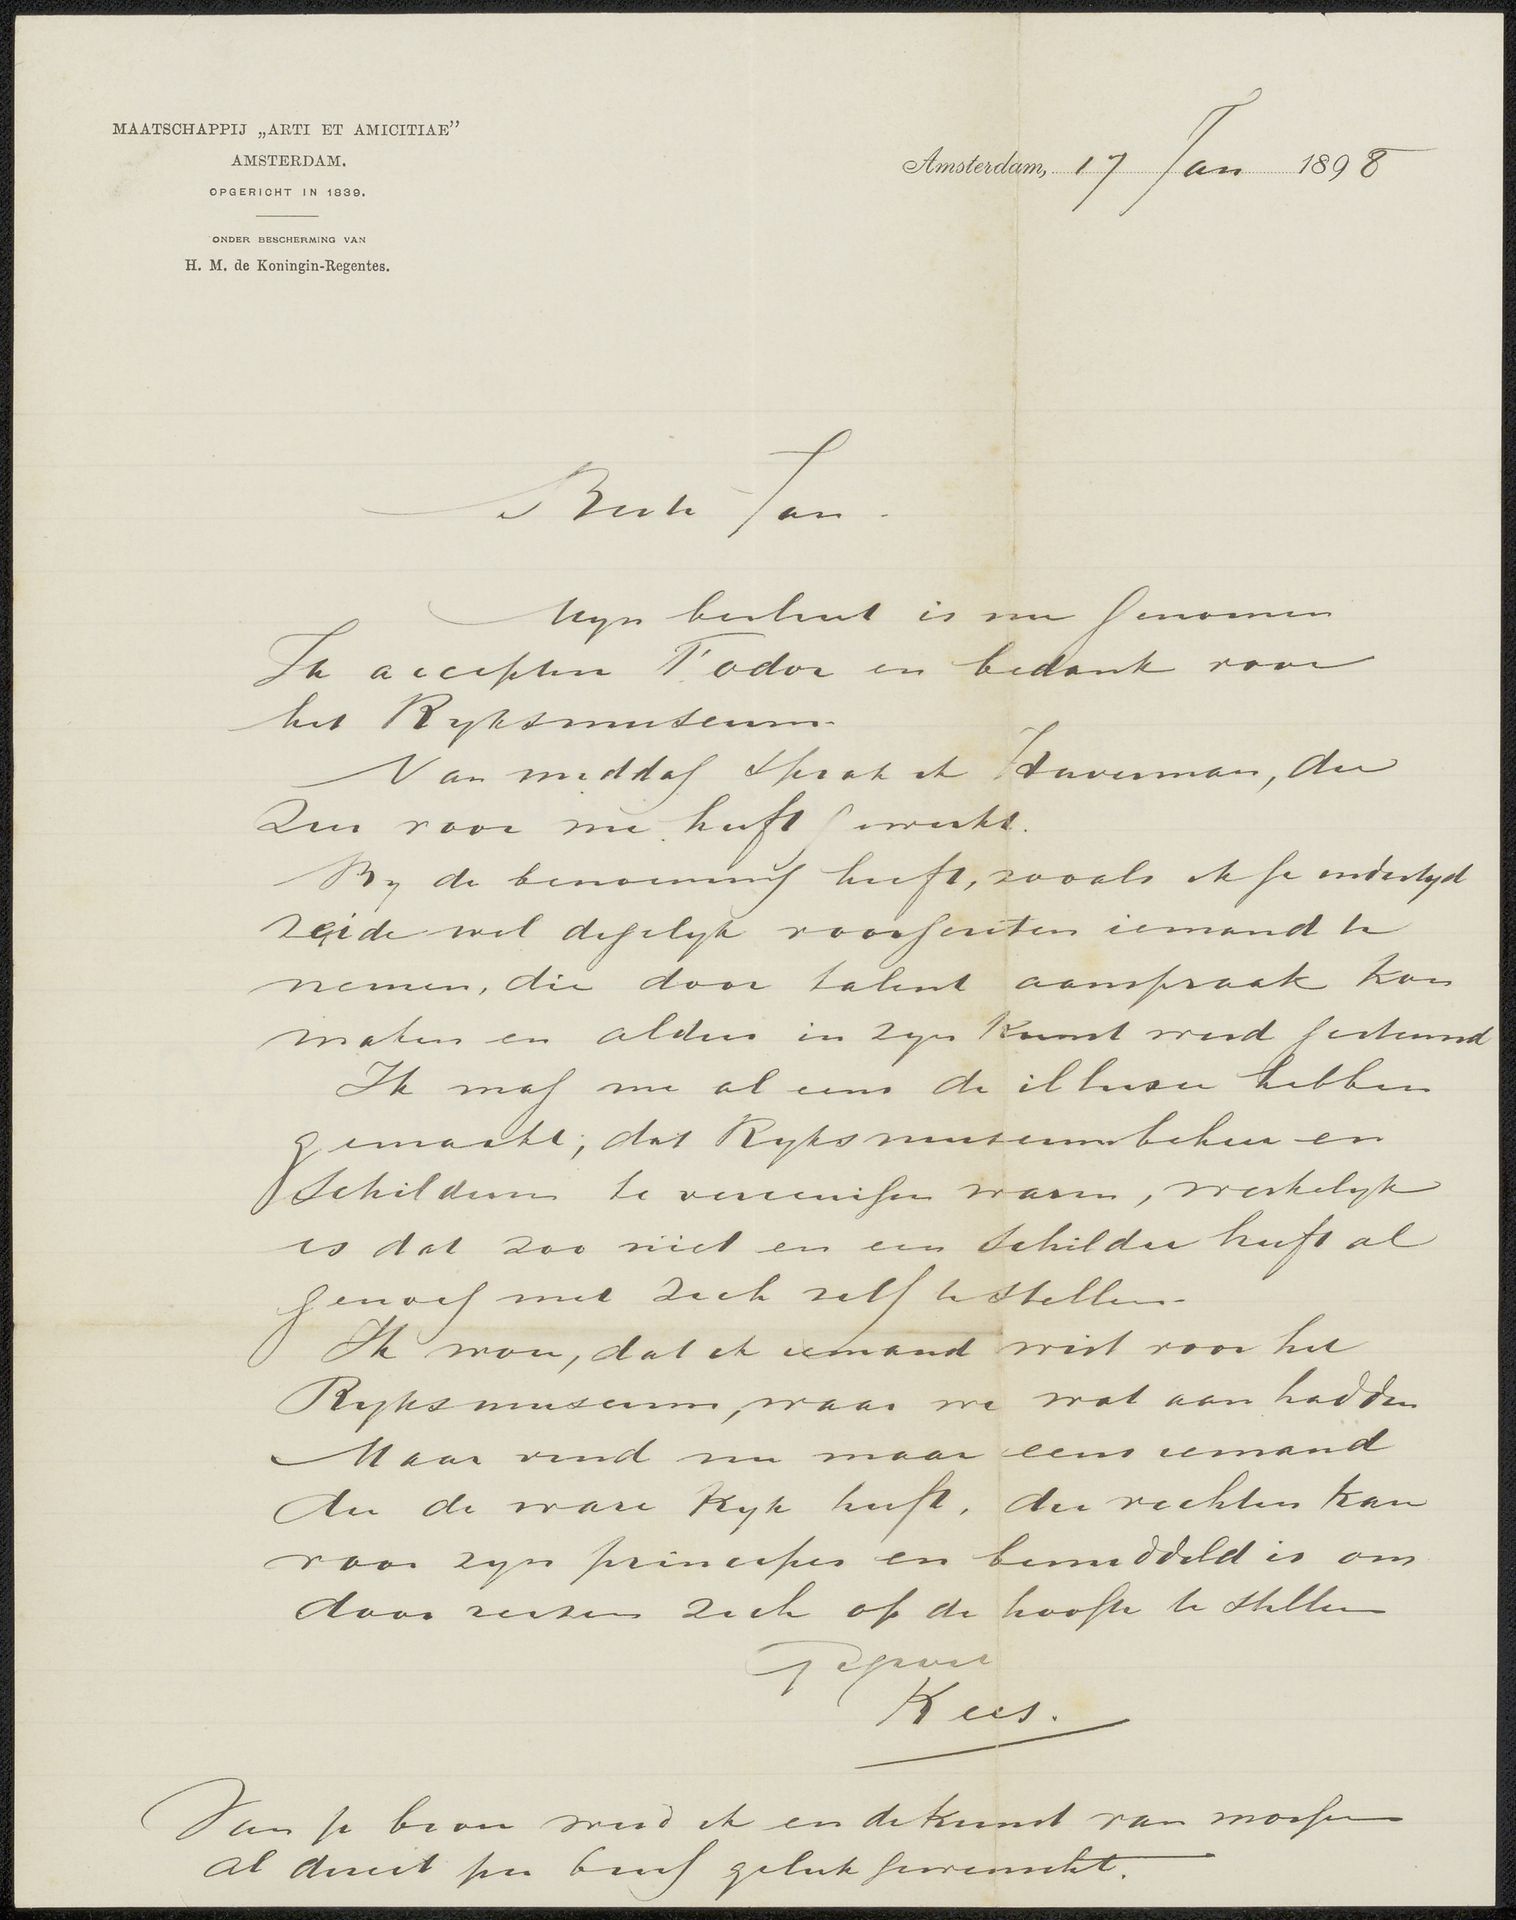 MAATSCHAPPIJ „ARTI ET AMICITIAE”
AMSTERDAM.
OPGERICHT IN 1839.
ONDER BESCHERMING VAN
H. M. de Koningin-Regentes.
Amsterdam, 17 Jan 1898
Beste Jan.
Myn besluit is nu genomen
Ik accepteer Fodor en bedank voor
het Ryksmuseum.
Van middag sprak ik Haverman, die
zeer voor me heeft gewerkt.
By de benoeming heeft, zooals ik je indertyd
zeide wel degelyk voorgezeten iemand te
nemen, die door talent aanspraak kon
maken en aldus in zyn kunst werd gesteund
Ik mag me al eens de illusie hebben
gemaakt, dat Ryksmuseumbeheer en
schilderen te vereenigen waren, werkelyk
is dat zoo niet en een schilder heeft al
genoeg met zich zelf te stellen
Ik wou, dat ik iemand wist voor het
Ryksmuseum, waar we wat aan hadden
Maar vind nu maar eens iemand
die de ware kyk heeft, die vechten kan
voor zyn principes en bemiddeld is om
door reizen zich op de hoogte te stellen
gegroet
Kees.
Van je broer werd ik en de kunst van morgen
al direct per brief geluk gewenscht.